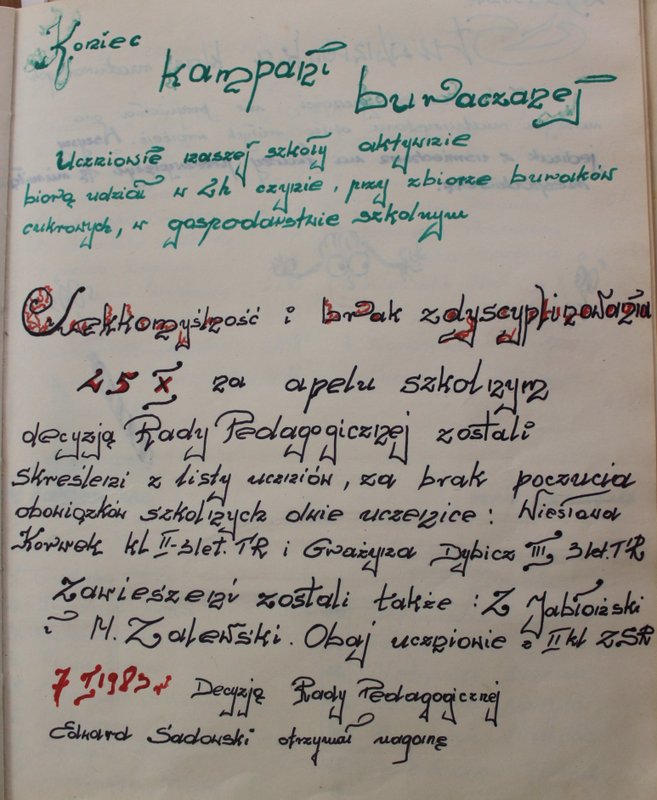 Koniec
kampani
buraczanej
Uczniowie naszej szkoły aktywnie
biorą udział w Zh czynie, przy zbiorze buraków
cukrowych, w gospodarstwie szkolnym
Lekkomyślność i brak zdyscyplinowania
25 X na apelu szkolnym
decyzją Rady Pedagogicznej zostali
skreśleni z listy uczniów, za brak poczucia
obowiązków szkolnych dwie uczenice: Wiesława
Korwek kl II-3let.TR i Grażyna Dybicz III 3let.TR
Zawieszeni zostali także: Z Jabłoński
i M. Zalewski. Obaj uczniowie z II kl ZSR
7 I 1983r Decyzją Rady Pedagogicznej
Edward Sadowski otrzymał naganę